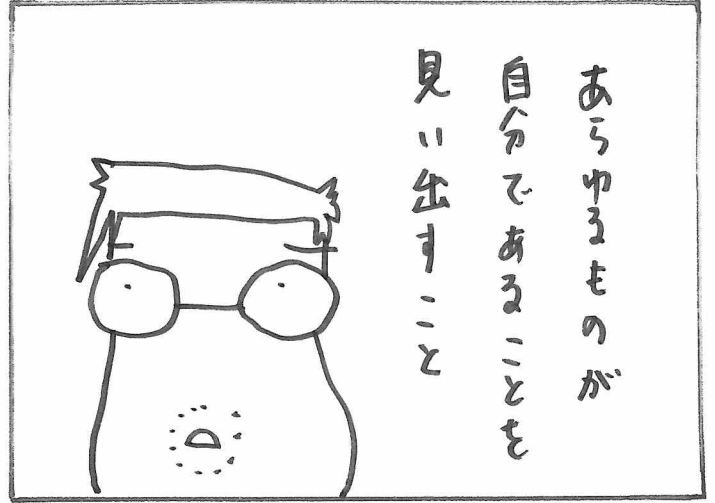 あらゆるものが
自分であることを
見い出すこと